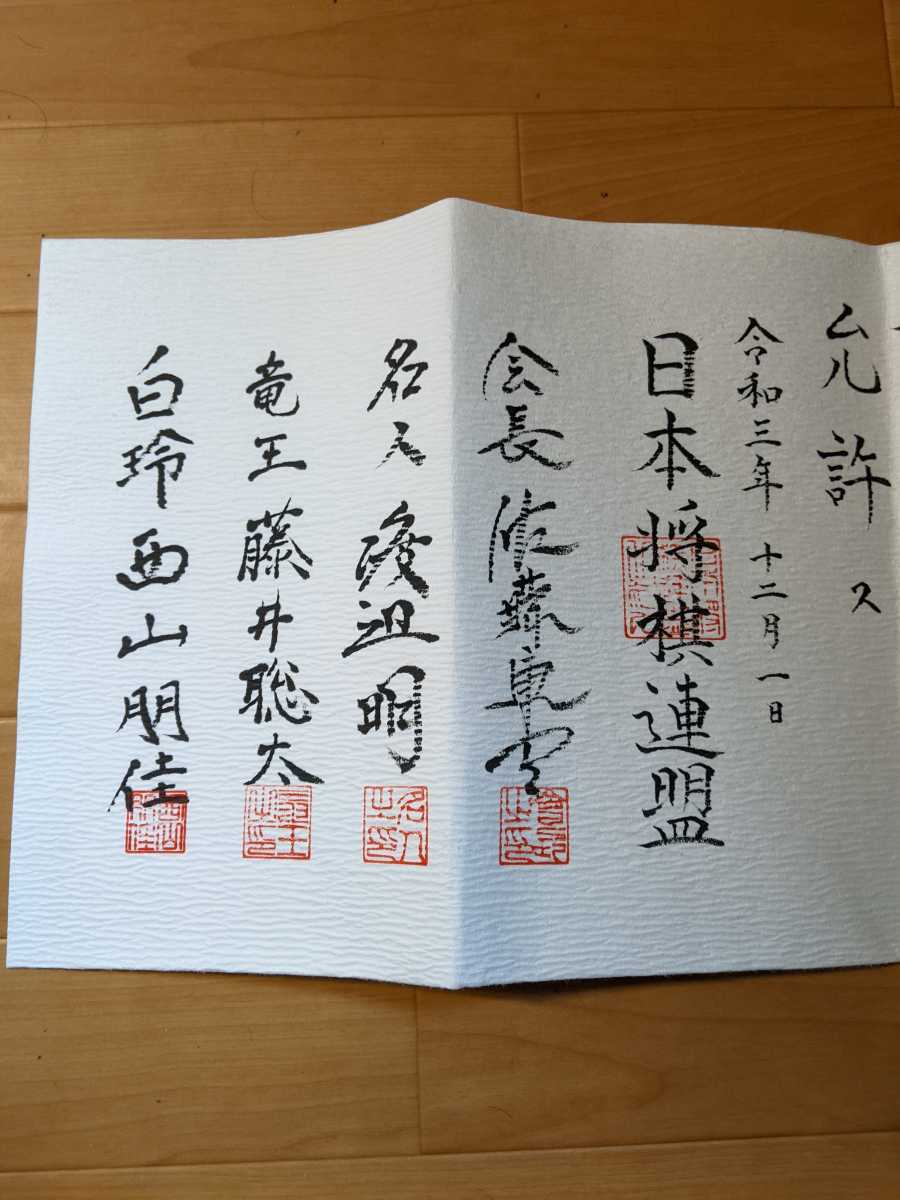 允許ス
令和三年十二月一日
日本将棋連盟
会長 佐藤康光
名人 渡辺明
竜王 藤井聡太
白玲 西山朋佳